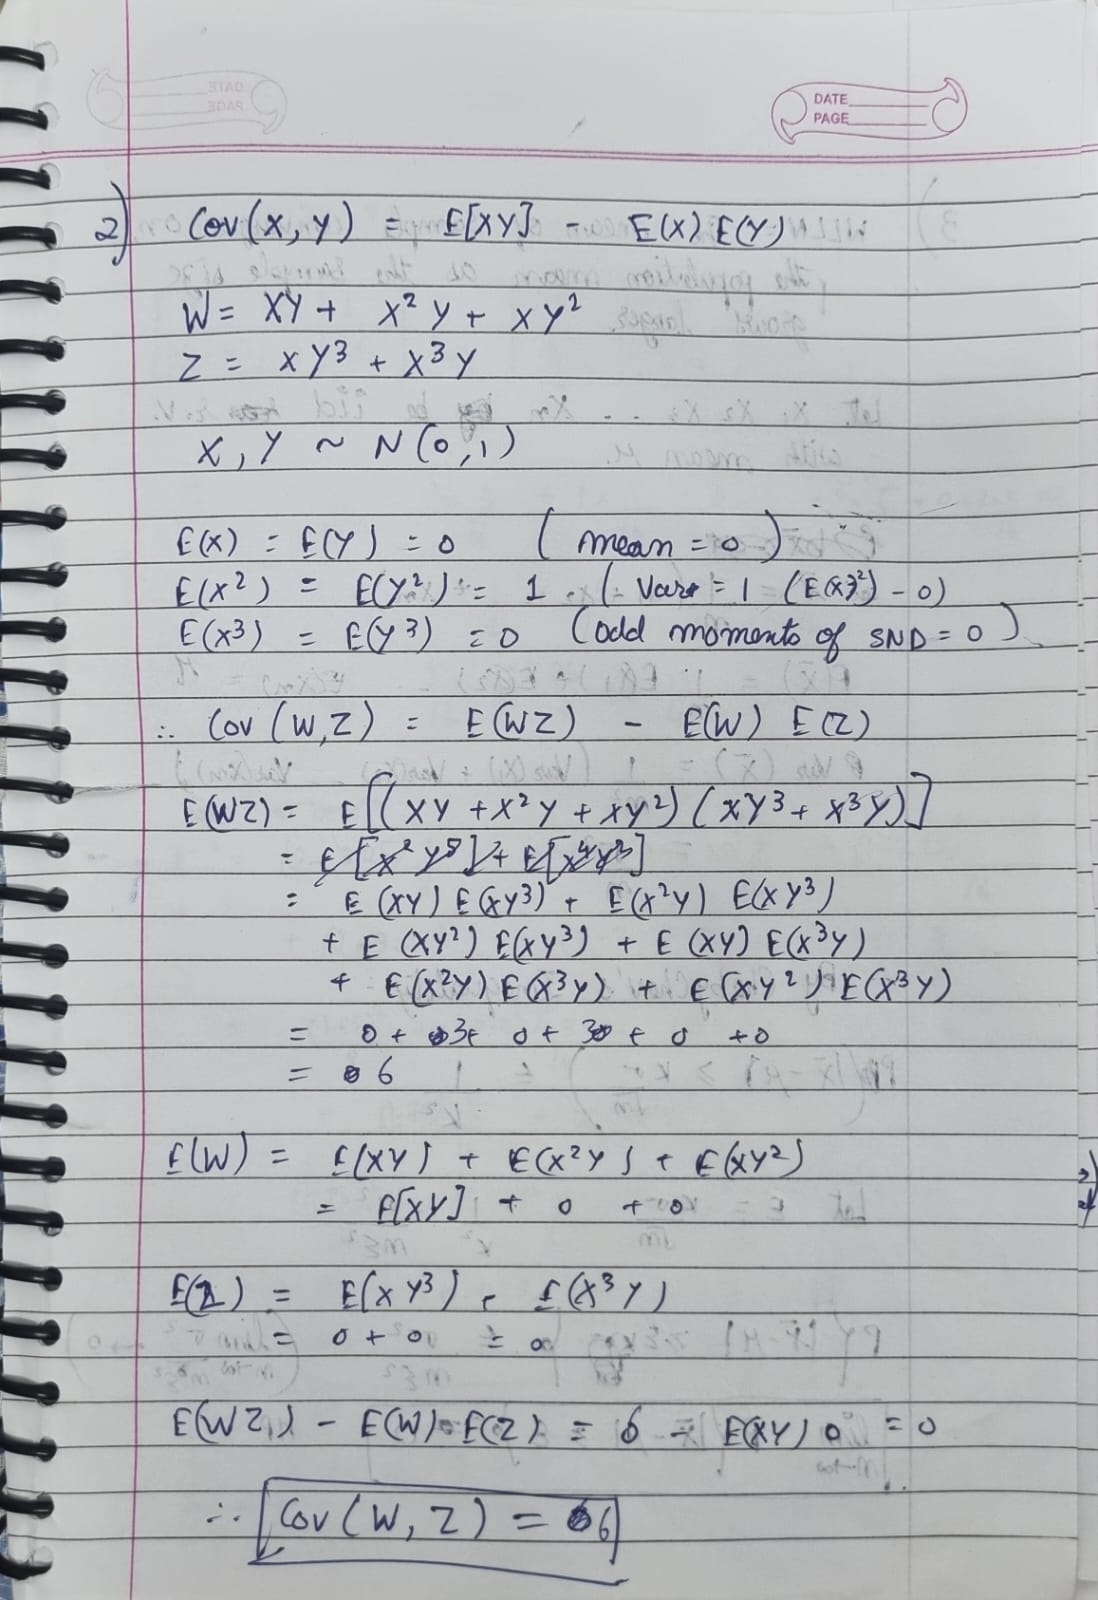 DATE
PAGE
2) Cov(X, Y) = E[XY] - E(X) E(Y)
W = XY + X² Y + XY²
Z = XY3 + X3Y
X, Y ~ N(0,1)
E(X) = E(Y) = 0 (mean = 0)
E(X²) = E(Y²) = 1 (Var = 1 (E(X²) - 0)
E(X3) = E(Y3) = 0 (odd moments of SND = 0)
∴ Cov (W,Z) = E(WZ) - E(W) E(Z)
E(WZ) = E[(XY + X²Y + XY²) (XY3 + X3Y)]
= E(XY) E(XY3) + E(X²Y) E(XY3)
+ E(XY²) E(XY3) + E(XY) E(X3Y)
+ E(X²Y) E(X3Y) + E(XY²) E(X3Y)
= 0 + 3+ 0 + 3 + 0 + 0
= 6
E(W) = E(XY) + E(X²Y) + E(XY²)
= E[XY] + 0 + 0
E(Z) = E(XY3) + E(X3Y)
= 0 + 0 = 0
E(WZ) - E(W) E(Z) = 6 - E(XY) 0 = 0
∴ Cov(W, Z) = 6